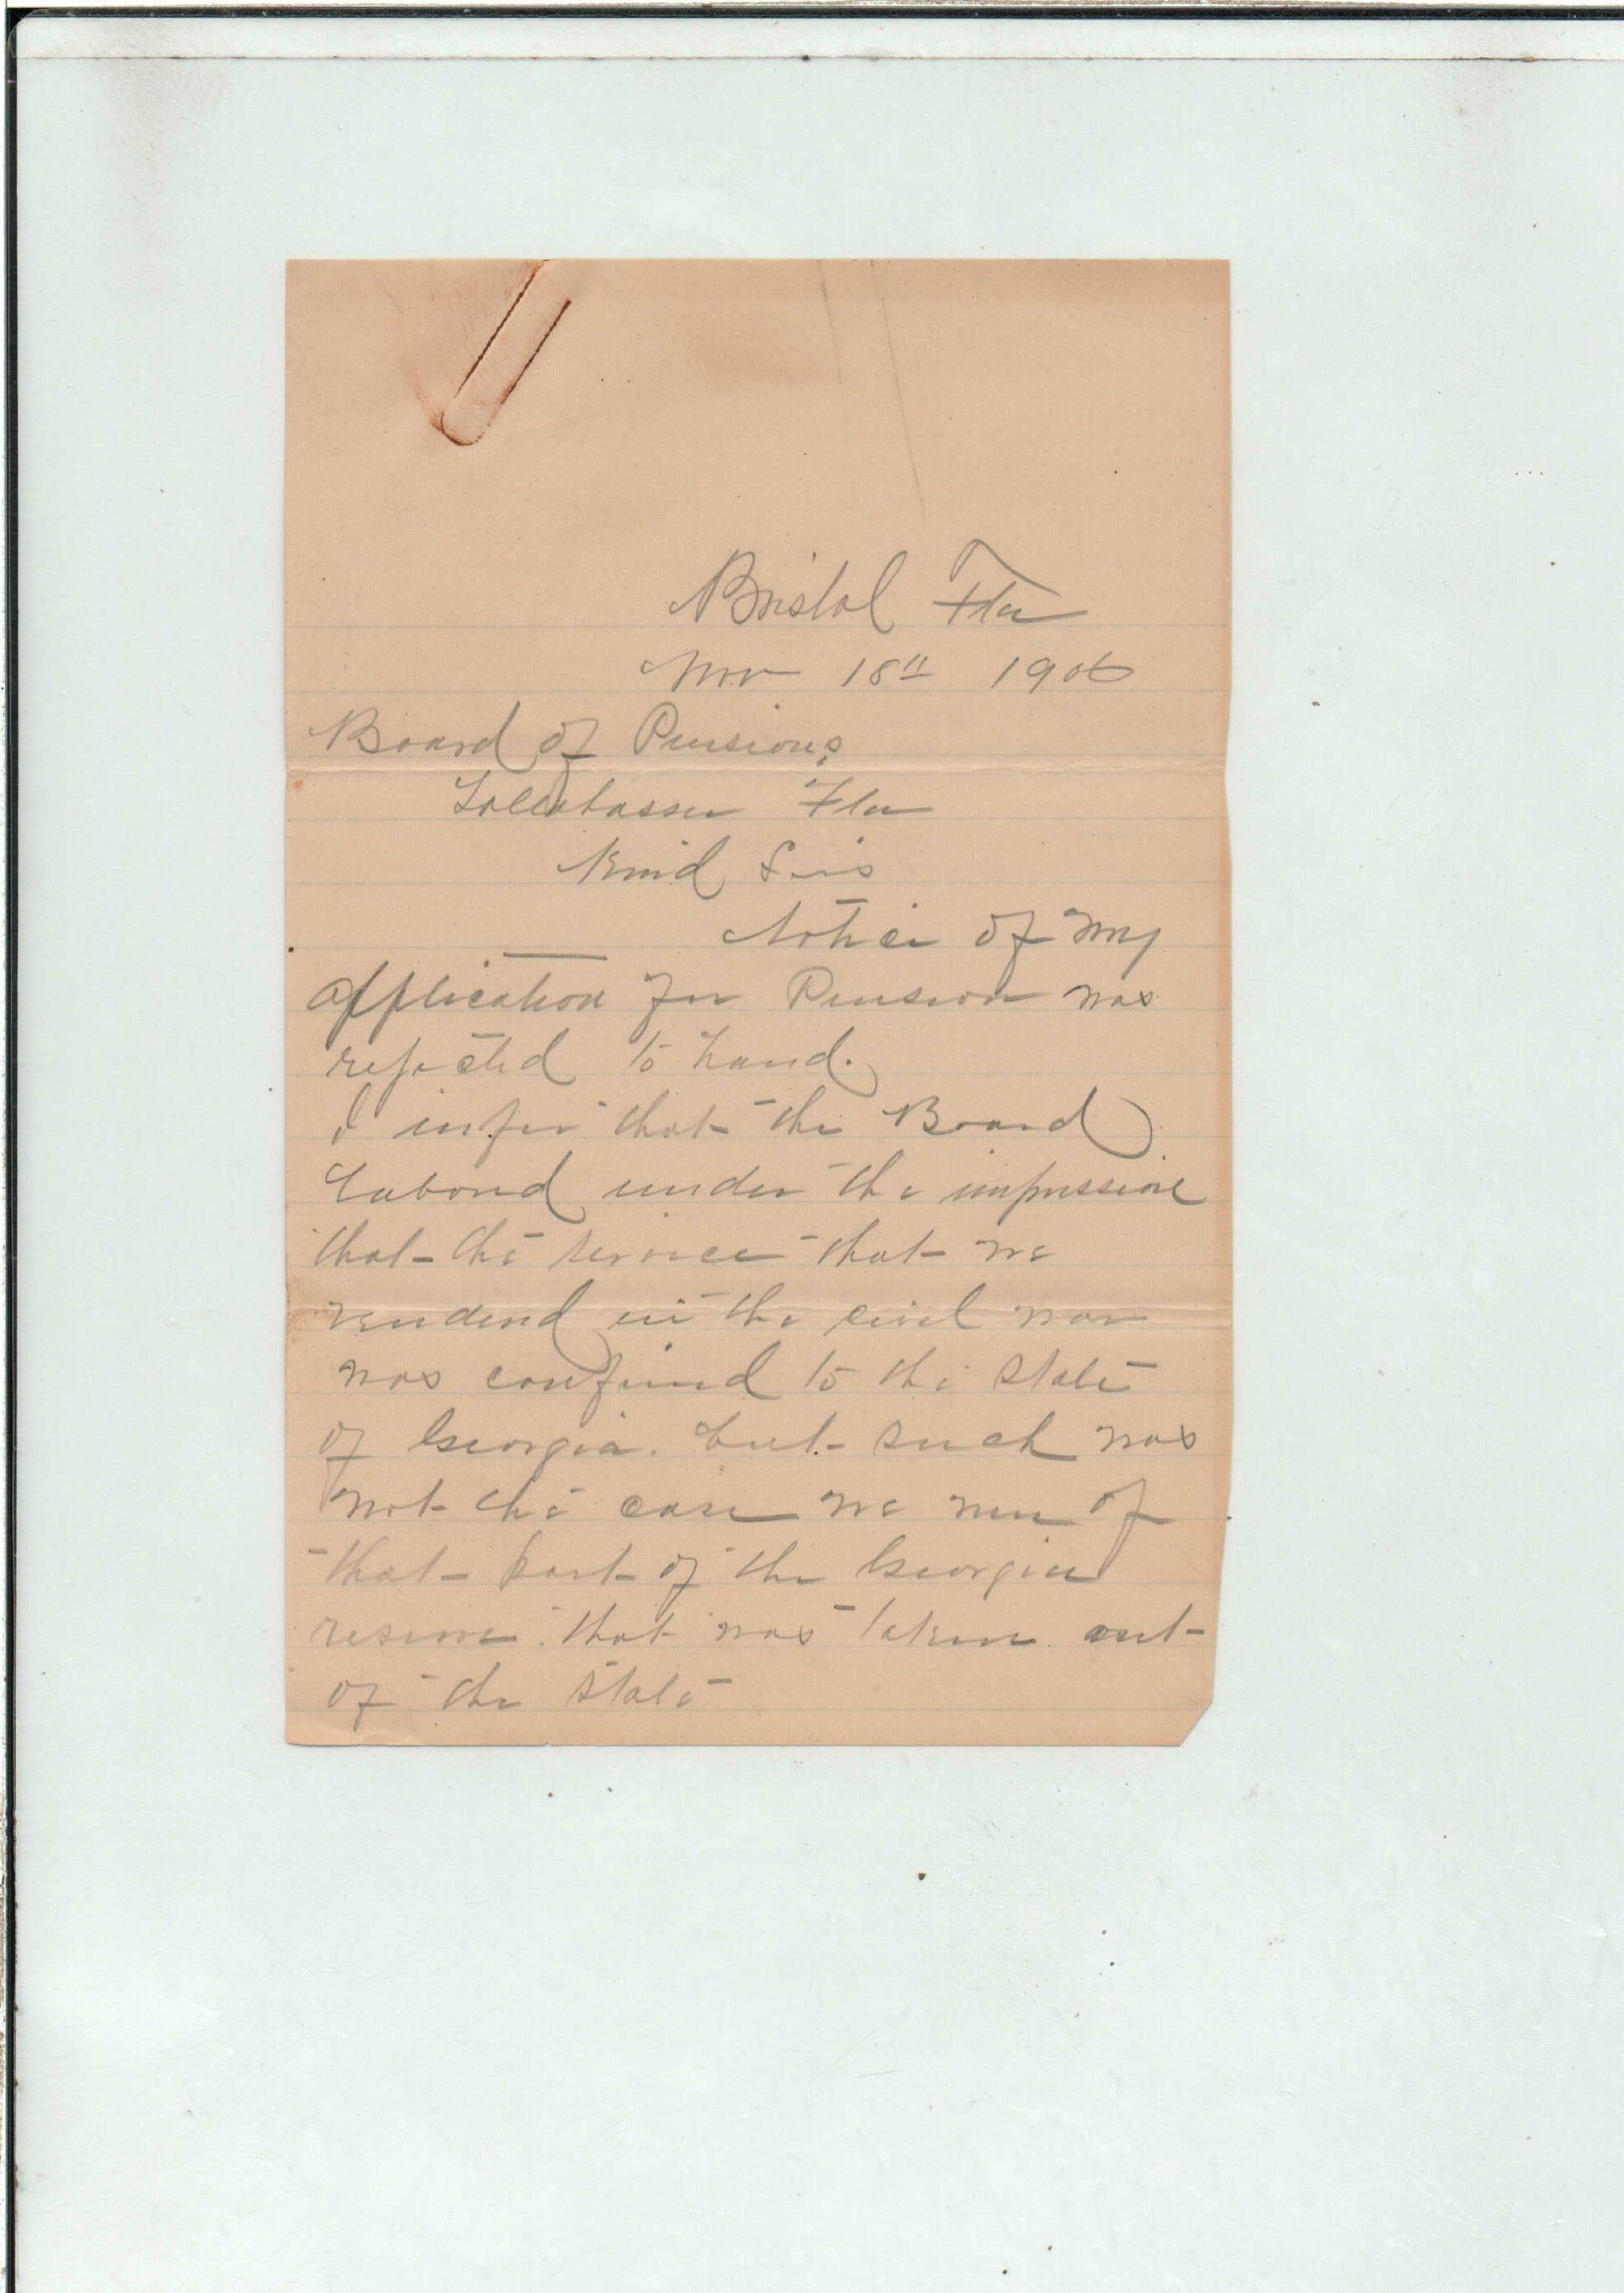 Bristol Fla
Nov 18th 1906
Board of Pensions
Tallahassee Fla
Kind Sirs
Notice of my
application for Pension was
rejected to hand.
I infer that the Board
labored under the impression
that the service that we
rendered in the civil war
was confined to the state
of Georgia. but such was
not the case we were of
that part of the Georgia
reserve that was taken out
of the state